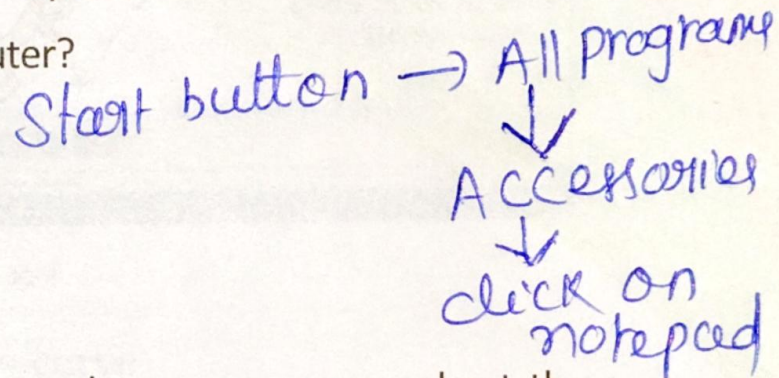 uter?
Start button → All programs
↓
Accessories
↓
click on
notepad